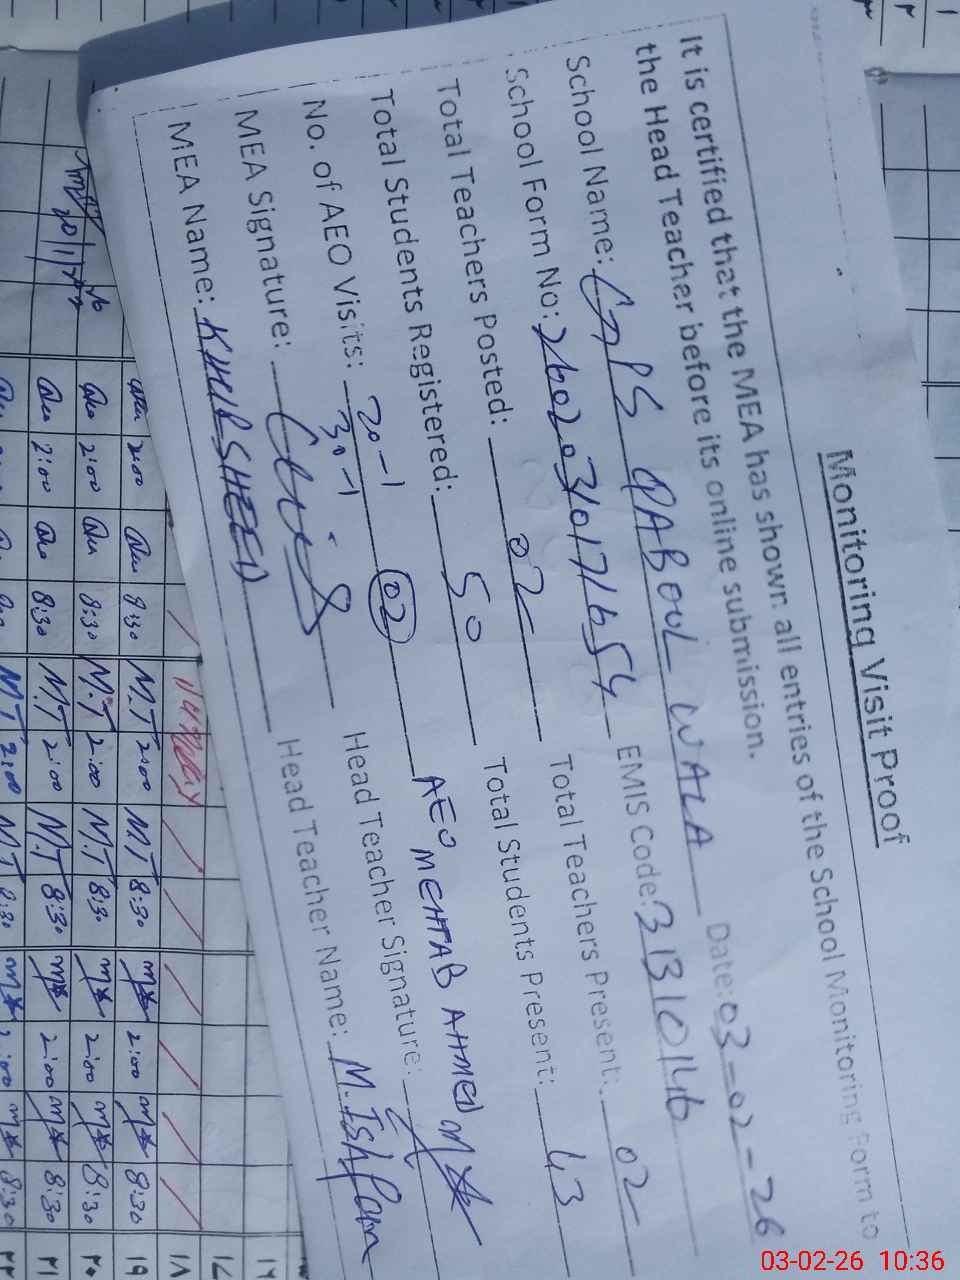 Monitoring Visit Proof
It is certified that the MEA has shown all entries of the School Monitoring Form to
the Head Teacher before its online submission.
School Name: GPS QABOOL WALA Date: 03-02-26
School Form No: 26020310171654 EMIS Code: 31310146
Total Teachers Posted: 02 Total Teachers Present: 02
Total Students Registered: 50 Total Students Present: 43
No. of AEO Visits: 20-1 30-1 02 AEO MEHTAB AHMED
MEA Signature: Head Teacher Signature:
MEA Name: KHURSHEED Head Teacher Name: M. Ishfam
۱۶
۱۷
۱۸
2:00 8:30 M.T 2:00 M.T 8:30 2:00 8:30 ۱۹
2:00 8:30 M.T 2:00 M.T 8:30 2:00 8:30 ۲۰
2:00 8:30 M.T 2:00 M.T 8:30 2:00 8:30 ۲۱
M.T 2:00 M.T 8:30 2:00 8:30 ۲۲
03-02-26 10:36